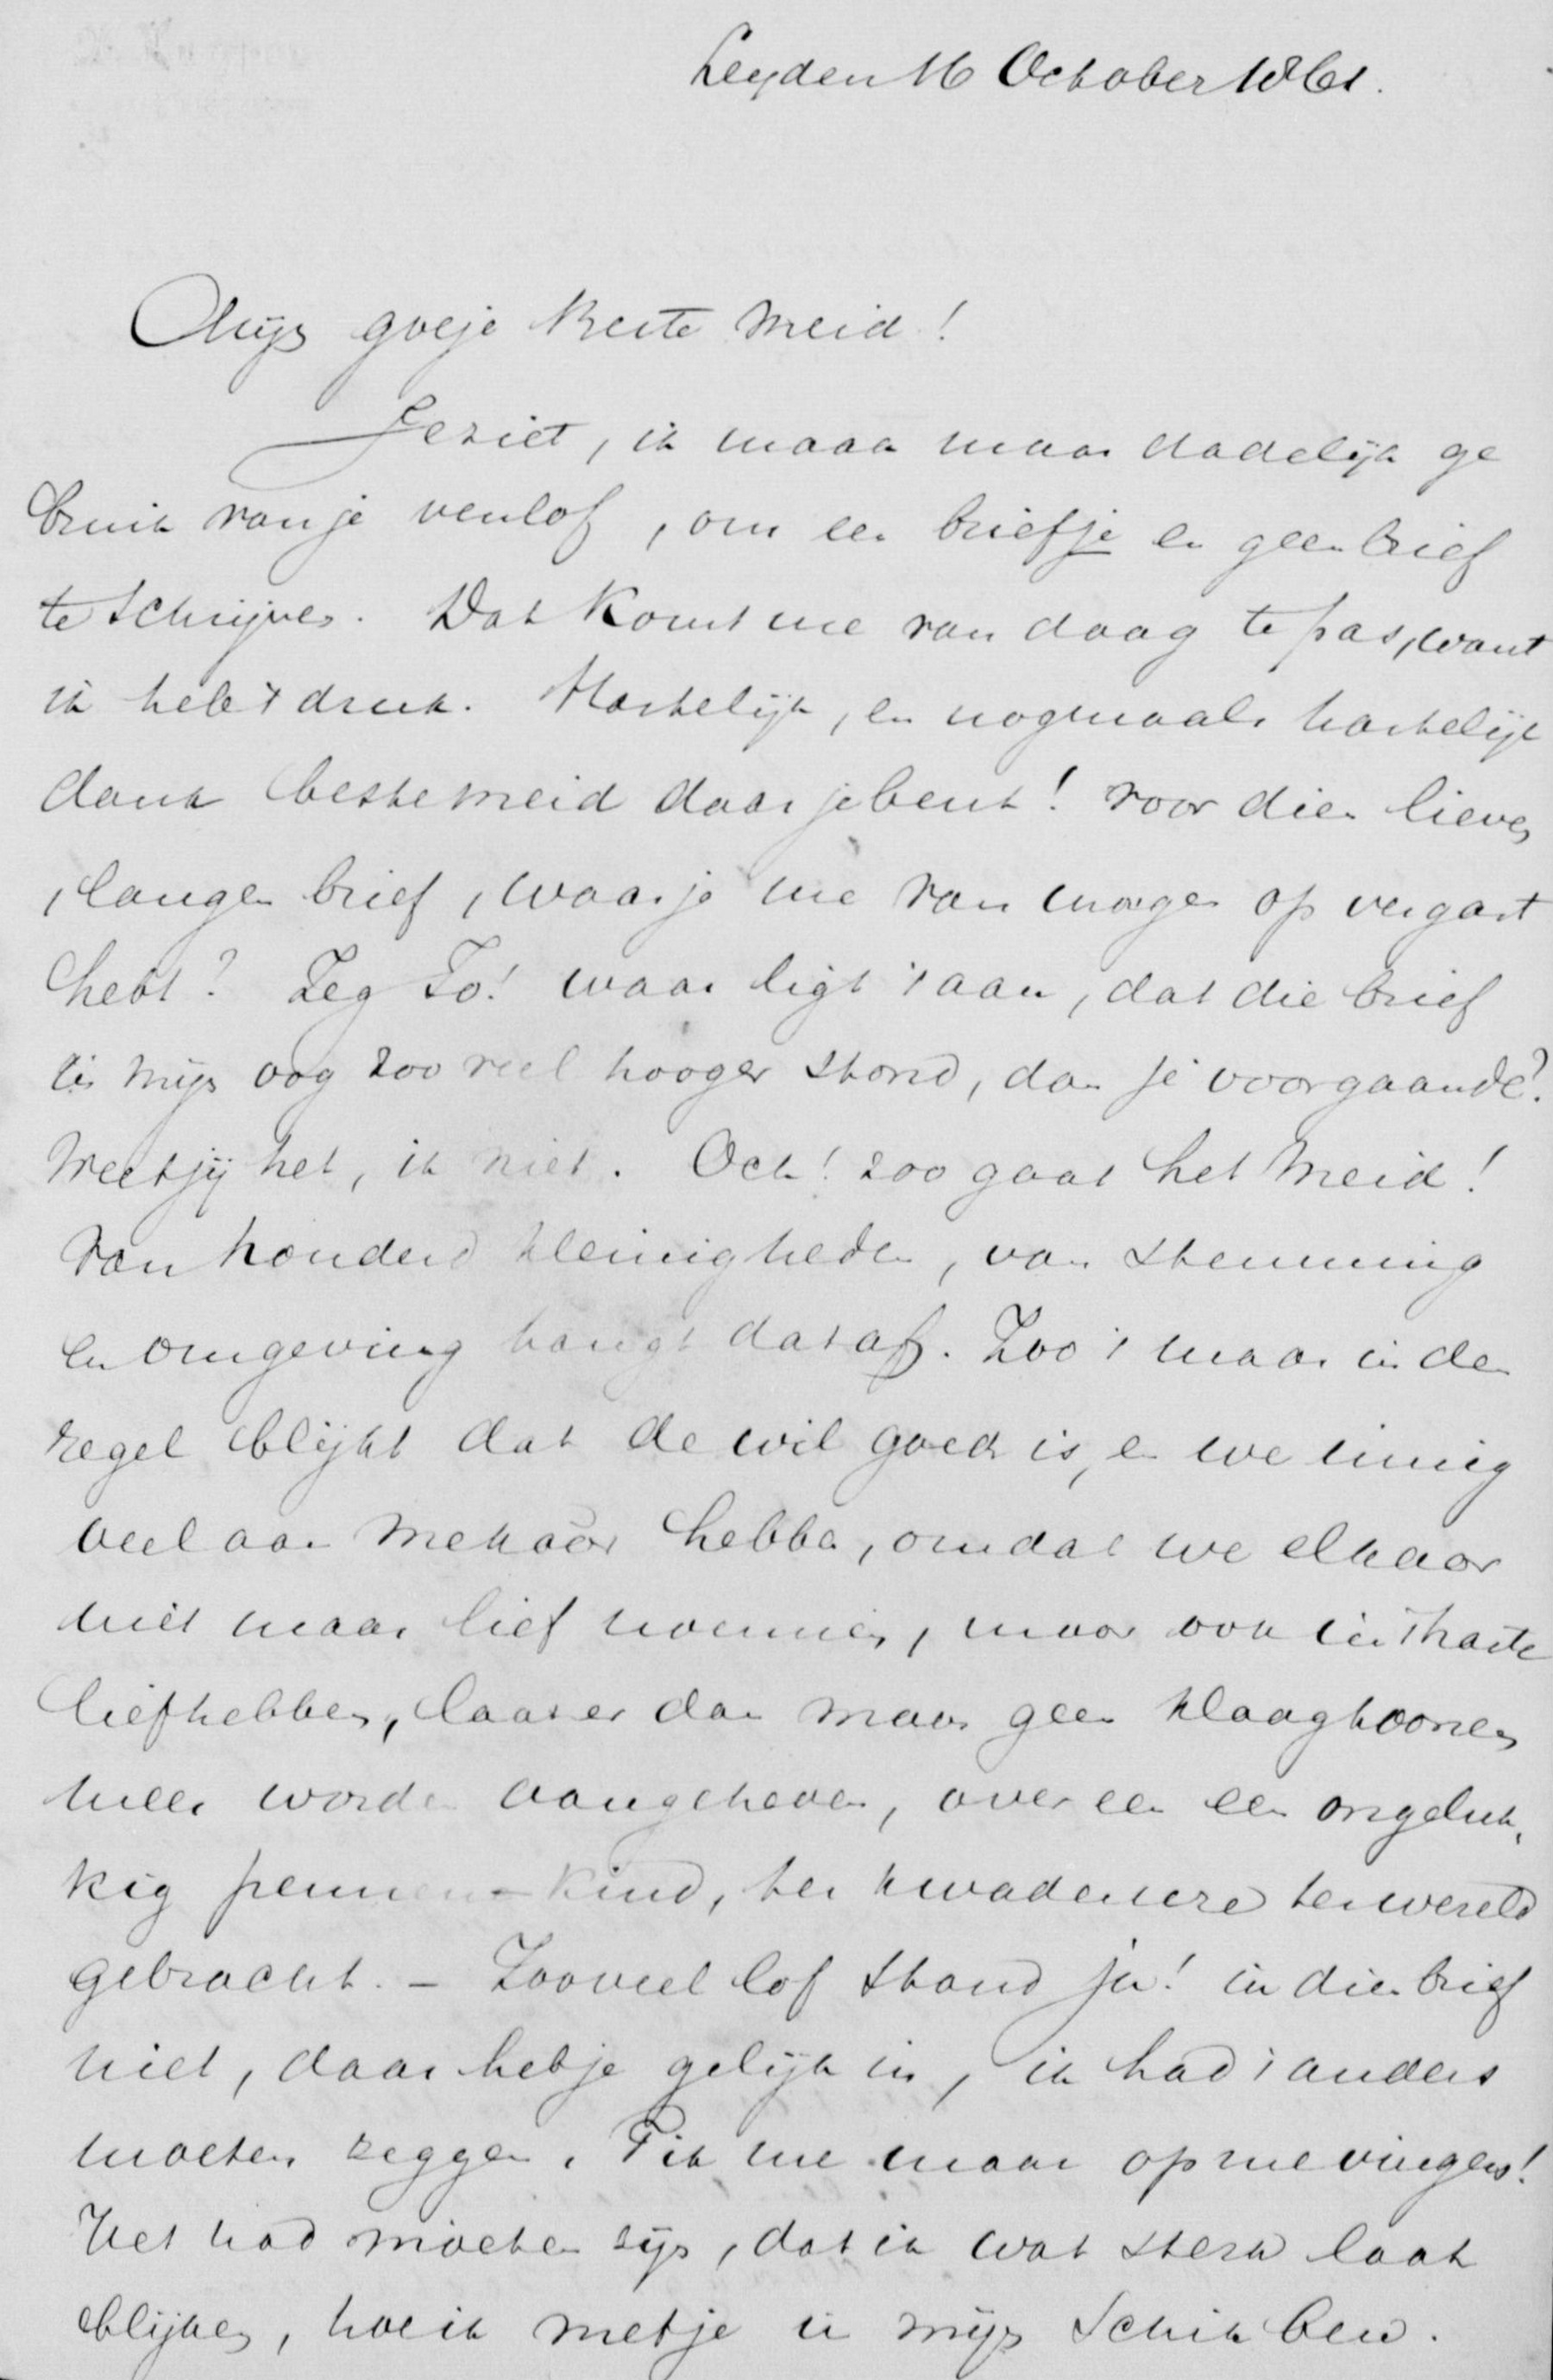 Leyden 16 October 1861.
Mijn goeje beste meid!
Je ziet, ik maak maar dadelijk ge
bruik van je verlof, om een briefje en geen brief
te schrijven. Dat komt me van daag te pas, want
ik heb 't druk. Hartelijk, en nogmaals hartelijk
dank beste meid daar je bent! voor dien lieven
, langen brief, waar je me van morgen op vergast
hebt? Zeg Zo! waar ligt 't aan, dat die brief
in mijn oog zoo veel hooger stond, dan je voorgaande?
Weet jij het, ik niet. Och! zoo gaat het meid!
Van honderd kleinigheden, van stemming
en omgeving hangt dat af. Zoo 't maar in den
regel blijkt dat de wil goed is, en we innig
veel aan mekaar hebben, omdat we elkaar
niet maar lief noemen, maar ook in 't harte
liefhebben, laat er dan maar geen klaagtoonen
meer worden aangeheven, over een een ongeluk,
kig pennen-kind, ter kwader ure ter wereld
gebracht. - Zooveel lof stond ja! in dien brief
niet, daar heb je gelijk in, ik had 't anders
moeten zeggen. Tik me maar op me vingers!
Het had moeten zijn, dat ik wat sterk laat
blijken, hoe ik met je in mijn schik ben.